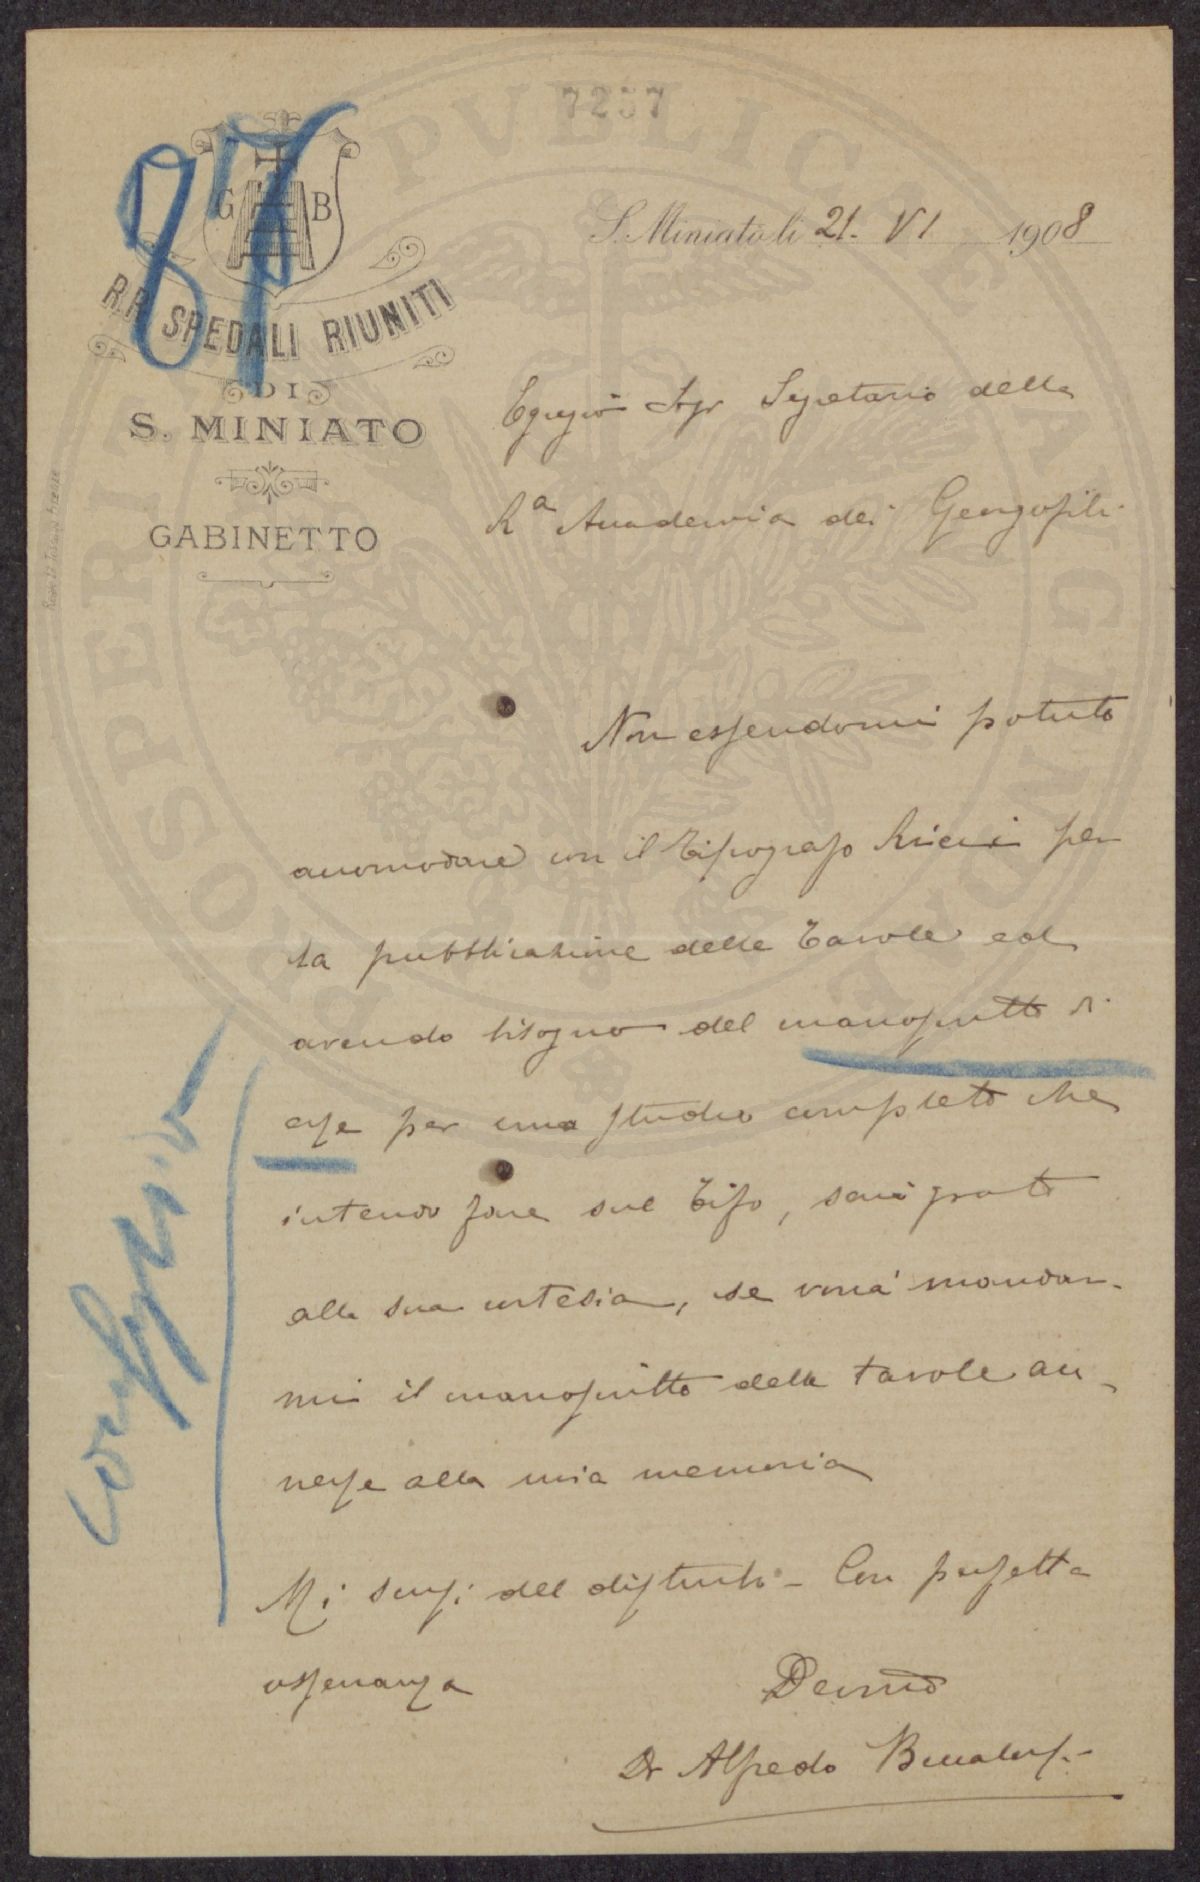 7257
87
G B
R.R. SPEDALI RIUNITI
DI
S. MINIATO
GABINETTO
S. Miniato li 21. VI 1908
Egregio Sigr Segretario della
Ra Accademia dei Georgofili
Non essendomi potuto
accomodare con il Tipografo Ricci per
la pubblicazione delle Tavole ed
avendo bisogno del manoscritto di
esse per uno studio completo che
intendo fare sul Tifo, sarò grato
alla sua cortesia, se vorrà mandar-
mi il manoscritto delle tavole an-
nesse alla mia memoria
Mi scusi del disturbo - Con perfetta
osservanza
Devmo
Dr Alfredo
PROSPERITATI PVBLICAE AVGENDAE